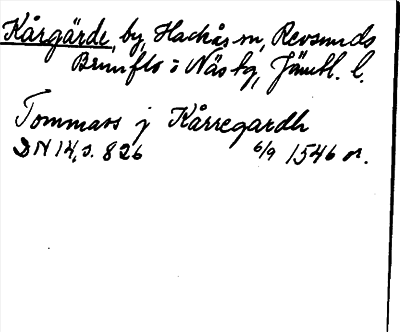 Kårgärde, by, Hackås sn, Revsunds
Brunflo o Näs tg, Jämtl. l.
Tommass j Kårregardh
DN 14, s. 826 6/9 1546 or.